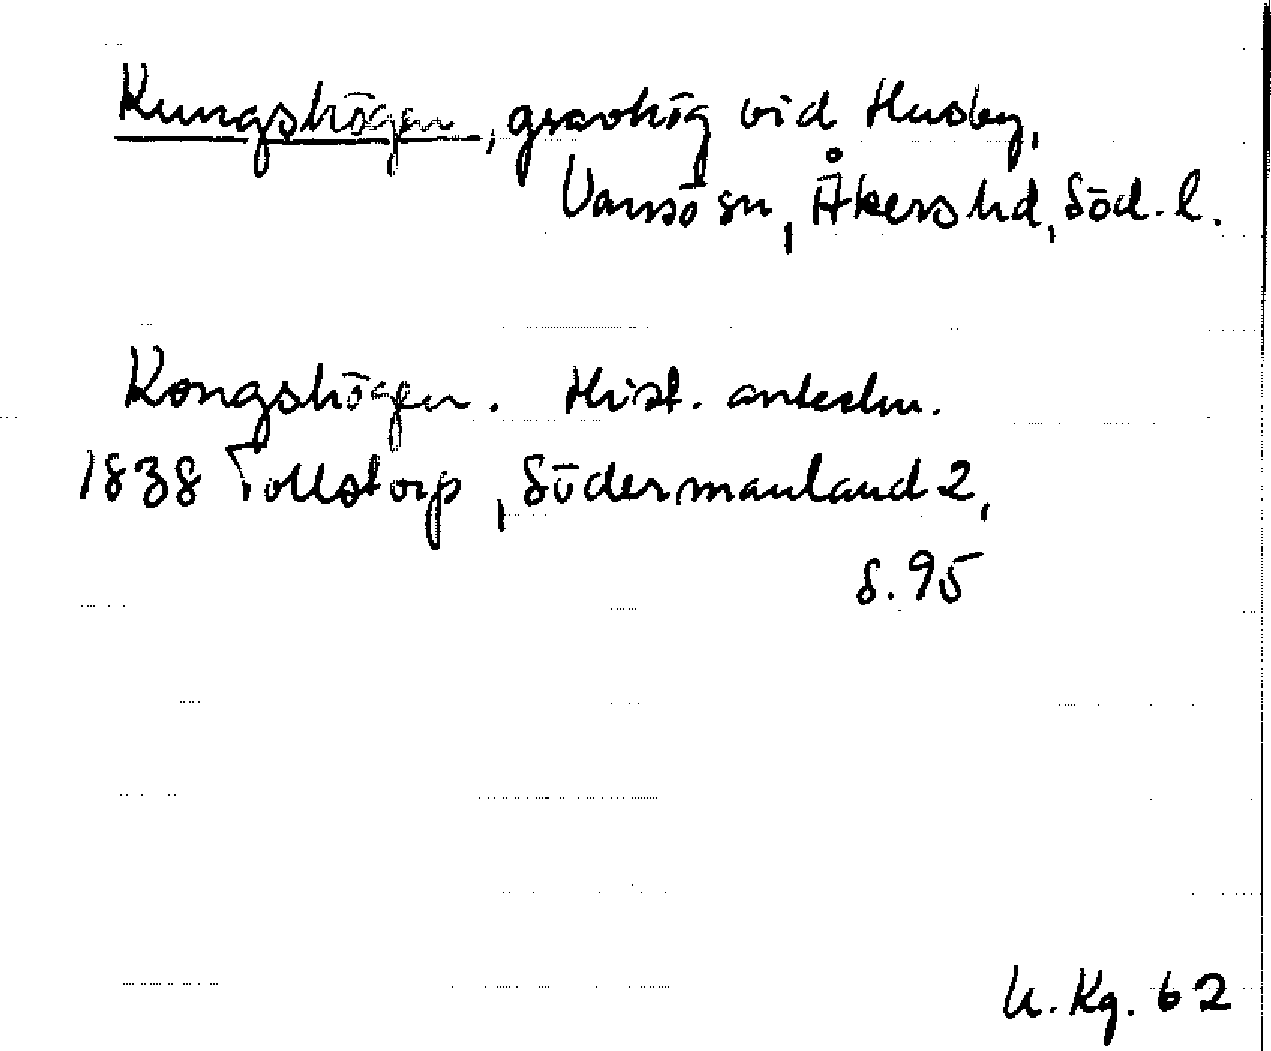 Kungshögen, gravhög vid Husby,
Vansö sn, Åkers hd, Söd. l.
Kongshögen. Hist. anteckn.
1838 Tollstorp, Södermanland 2,
s. 95
K. Kg. 62